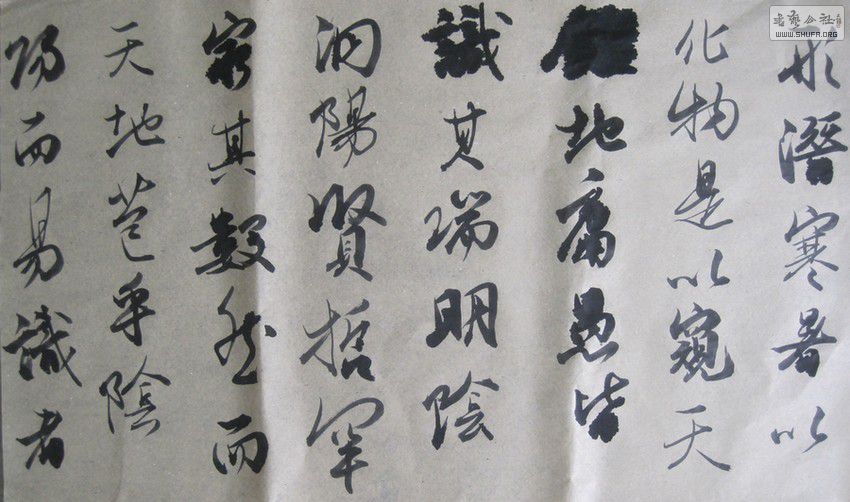 形潛寒暑以
化物是以窺天
地庸愚皆
識其端明陰
洞陽賢哲罕
窮其數然而
天地苞乎陰
陽而易識者
書藝公社
WWW.SHUFA.ORG